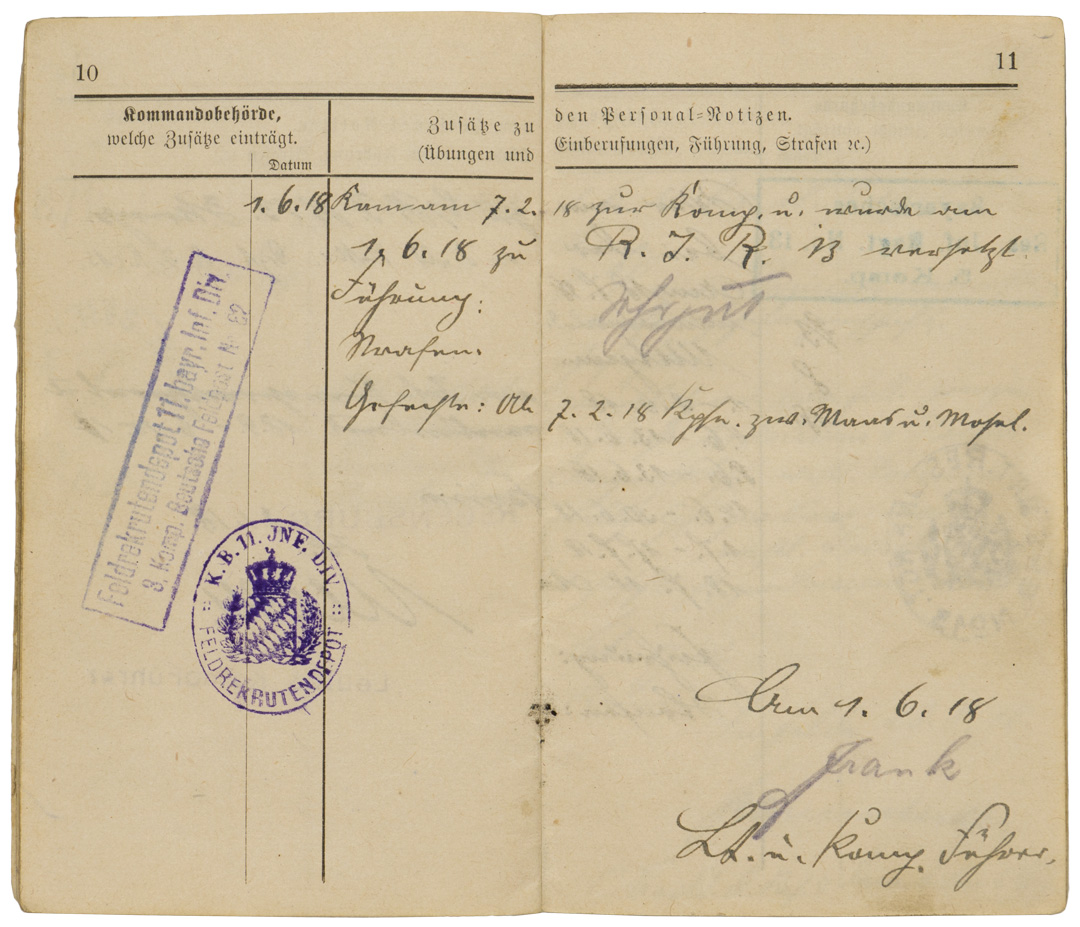 10
11
Kommandobehörde,
welche Zusätze einträgt.
Datum
Zusätze zu den Personal-Notizen.
(Übungen und Einberufungen, Führung, Strafen ꝛc.)
1.6.18 Kam am 7.2.18 zur Komp. u. wurde am
1.6.18 zu R. I. R. 13 versetzt.
Führung: sehr gut
Strafen:
Gefechte: Ab 7.2.18 Kpfe. zw. Maas u. Mosel.
Feldrekrutendepot 11. bayr. Inf. Div.
3. Komp. Deutsche Feldpost Nr.
K. B. 11. JNF. DIV.
FELDREKRUTENDEPOT
Am 1.6.18
Frank
Lt. u. Komp. Führer.